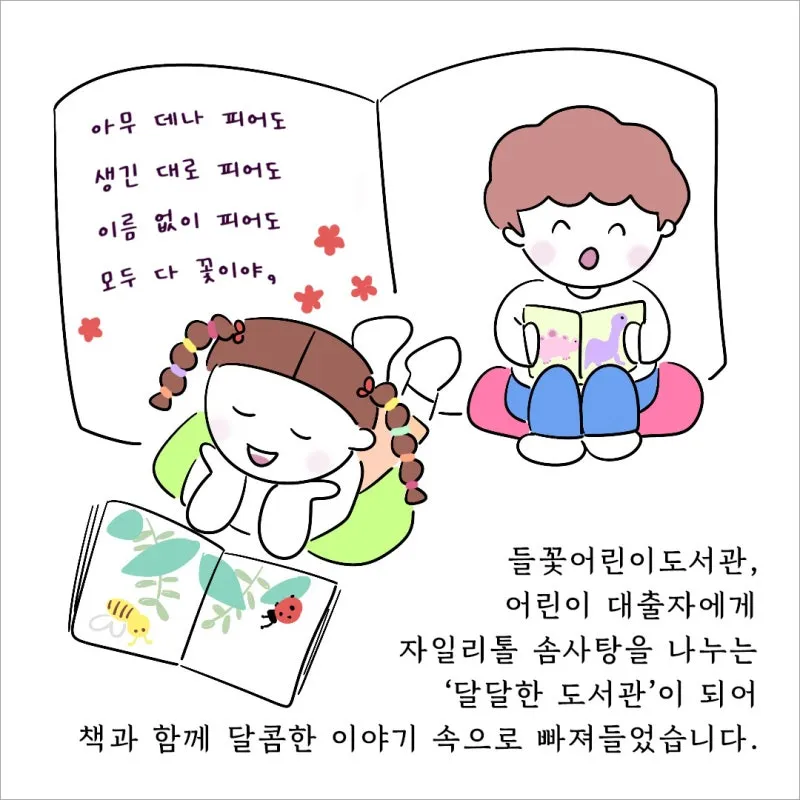 아무 데나 피어도
생긴 대로 피어도
이름 없이 피어도
모두 다 꽃이야,
들꽃어린이도서관,
어린이 대출자에게
자일리톨 솜사탕을 나누는
‘달달한 도서관’이 되어
책과 함께 달콤한 이야기 속으로 빠져들었습니다.